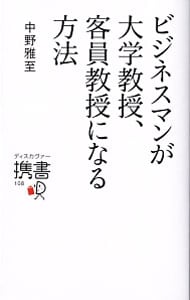 ビジネスマンが
大学教授、
客員教授になる
方法
中野雅至
ディスカヴァー
携書
108